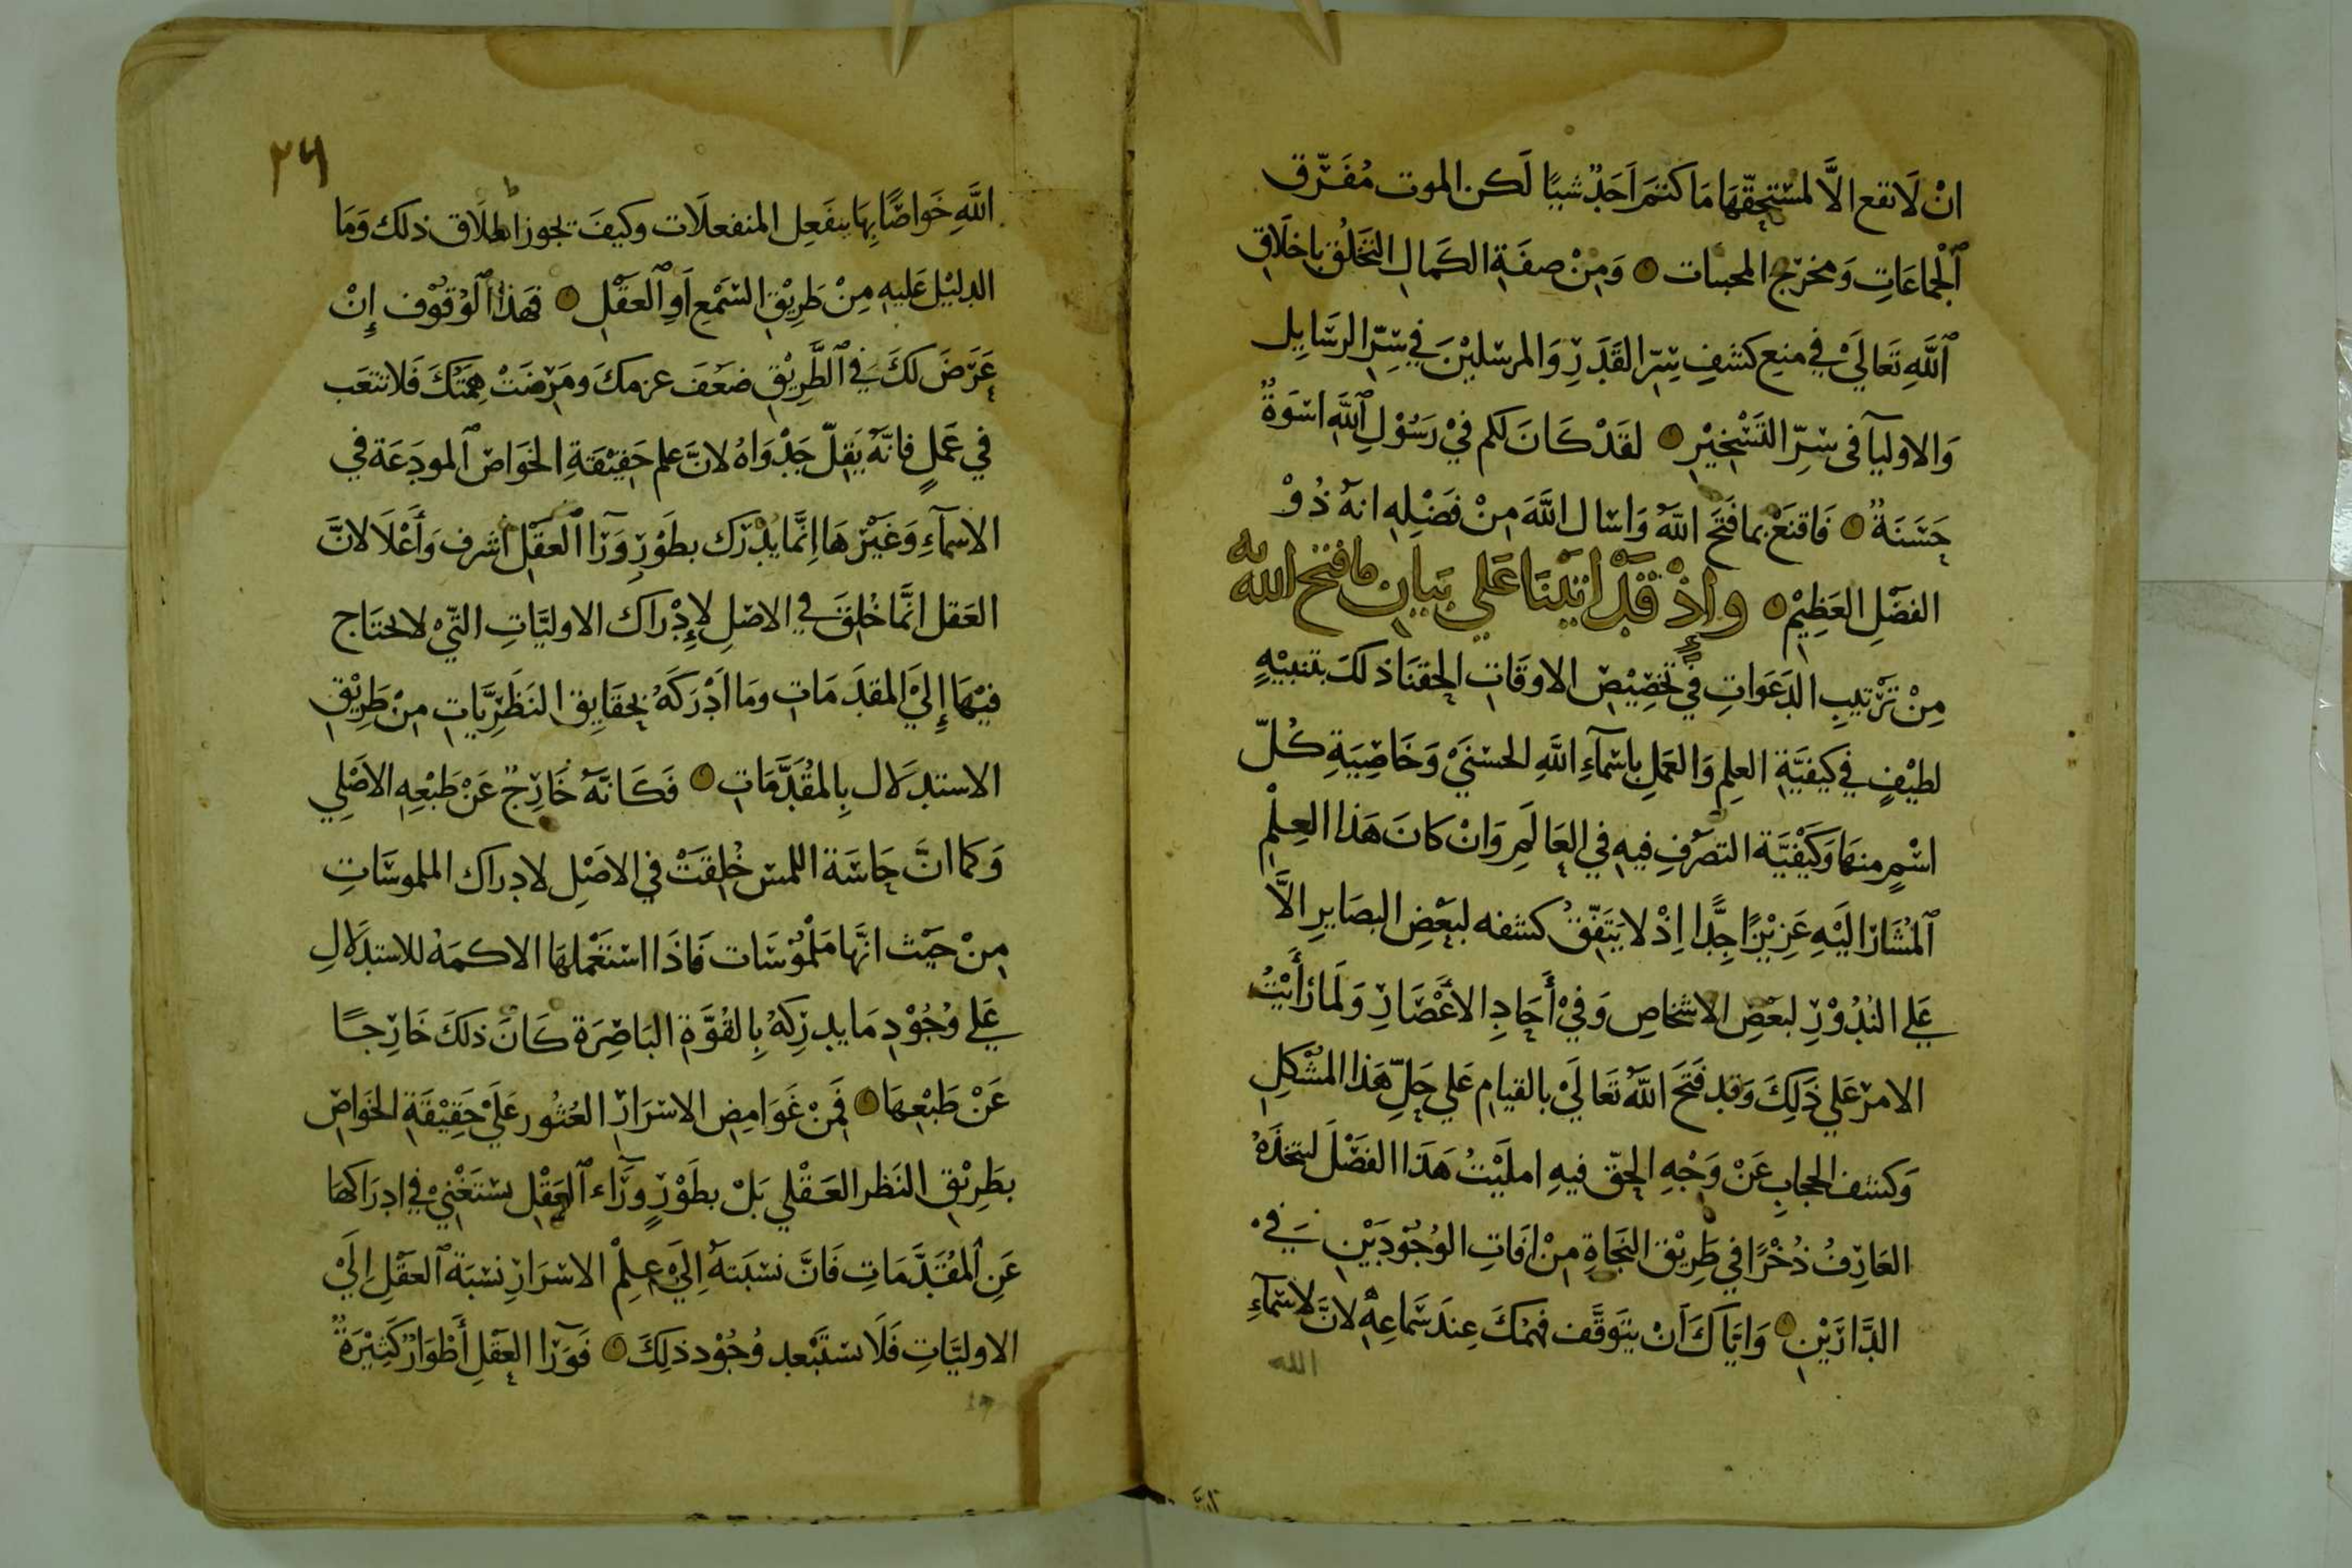 انْ لَا تقع الَّا لمسْتحِقّهَا مَا كنتمَ اَحَدٌ شيًا لَكن الموت مُفَرّق
ٱلْجماعَاتِ وَمخرج المحبات وَمِنْ صفَةِ الكَمال التخَلُّق باخلَاقِ
ٱللَّهِ تَعَاليَ في منع كشفِ سِرّ القَدَرِ وَالمرسَلينَ في سِرّ الرسَايل
وَالاوليآ فى سرِّ التَسْخيْرِ لقَدْ كَانَ لكم فيْ رَسُوْلِ ٱللَّهِ اسْوَةٌ
حَسَنَةٌ فَاقنَعْ بمافَتَح اللَّهُ وَاسَال اللَّهَ مِنْ فَضْلِهِ انهُ ذُوْ
الفضْلِ العَظِيْمِ وَاِذْ قَدْ اتيْنَا عَلي بَيَانِ مَا فتح الله به
مِنْ تَرْتيبِ الدَعَوَاتِ في تخصِيْصِ الاوقَاتِ الحَقنَا ذلكَ بتنبيْهٍ
لطيْفٍ في كيفيَّةِ العِلمِ وَالعَملِ باسَمآءِ اللَّهِ الحسْنيَ وَخَاصِيَةِ كُلّ
اسْمٍ منهَا وَكَيْفيَّة التصَرّفِ فيهِ في العَالَمِ وَانْ كانَ هَذا العِلْمِ
ٱلمُشَار اليْهِ عَزيْزًا جِدًّا اِذْ لا يَتّفقُ كشفه لبَعْضِ البصَايرِ الَّا
عَلي النُدُوْرِ لبَعْضِ الاشخاصِ وَفيْ أَحَادِ الأَعْصَارِ وَلَما رَأَيْتُ
الامرْ عَلي ذَلِكَ وَقد فَتَح اللَّهُ تَعَاليَ بالقيام عَلي حَلِّ هَذا المشْكلِ
وَكشف الحجابِ عَنْ وَجْهِ الحقّ فيهِ املَيْتُ هَذا الفضْلَ ليتخذَهُ
العَارِفُ ذُخْرًا في طَرِيْق النجَاةِ مِنْ افَاتِ الوُجُوْدَيْنِ في
الدَّارَيْنِ وَايّاكَ اَنْ يتَوَقَّف فهمكَ عِندَ سَماعِهِ لانَّ لاسْمآءِ
الله
٢٦
اللَّهِ خَواصًّا بِهَا ينفَعِل المنفعلَات وكيفَ يجوز اطلَاق ذلك وَمَا
الدليْل عَليهِ مِنْ طَرِيْقِ السَمْعِ اَوِ ٱلعقْلِ فهَذا ٱلوُقوْف إِنْ
عَرَضَ لكَ في ٱلطَّرِيْقِ ضعْفَ عزمكَ ومَرضَتْ هِمَّتكَ فَلا تتعَب
في عَملٍ فانّهُ يَقِلّ جَدْوَاهُ لانَّ علم حَقِيْقَةِ الخوَاصّ ٱلمودَعَة في
الاسمآءِ وَغَيْرهَا اِنَّما يُدْرَك بطَوْرِ وَرَآا ٱلعقْل اشرف وَأَعْلَا لانَّ
العَقل انَّما خُلِقَ في الاصْلِ لإِدْرَاك الاوليَّاتِ التّيْ لا تحتَاج
فيْهَا إِليَ المقدَمَاتِ وَمَا اَدْرَكَهُ بحقَايِق النَظَرِيَّاتِ مِنْ طَرِيْقِ
الاستدلَال بِالمُقَدَّمَاتِ فَكَانَّهُ خَارِجٌ عَنْ طَبْعِهِ الاصْلِي
وَكما انَّ حَاسَّة اللمس خُلِقتْ في الاصْلِ لادراك الملموسَاتِ
مِنْ حيْث انَّها مَلمُوْسَات فَاذَا اسْتَعْملهَا الاكمَهْ للاستدلَالِ
عَلي وُجُوْدِ مَا يدرِكهُ بِالقُوَّةِ البَاصِرَة كَانَ ذلكَ خَارِجًا
عَنْ طَبْعِهَا فمِنْ غَوَامِض الاسْرَارِ العُثُور عَليَ حَقِيْقَةِ الخوَاصّ
بطَرِيْقِ النَظر العَقْلي بَلْ بطَوْرٍ وَرَآء ٱلعقْل يسْتَغْنيْ في ادرَاكهَا
عَنِ ٱلمُقَدَّمَاتِ فَانَّ نسْبَتهُ اِليَ عِلْمِ الاسْرَارِ نسْبَة ٱلعقْلِ اِليَ
الاوليَّاتِ فَلَا يسْتَبْعد وُجُوْد ذلِكَ فَوَرَآا العقْلِ أَطْوَارٌ كَثِيْرَةٌ